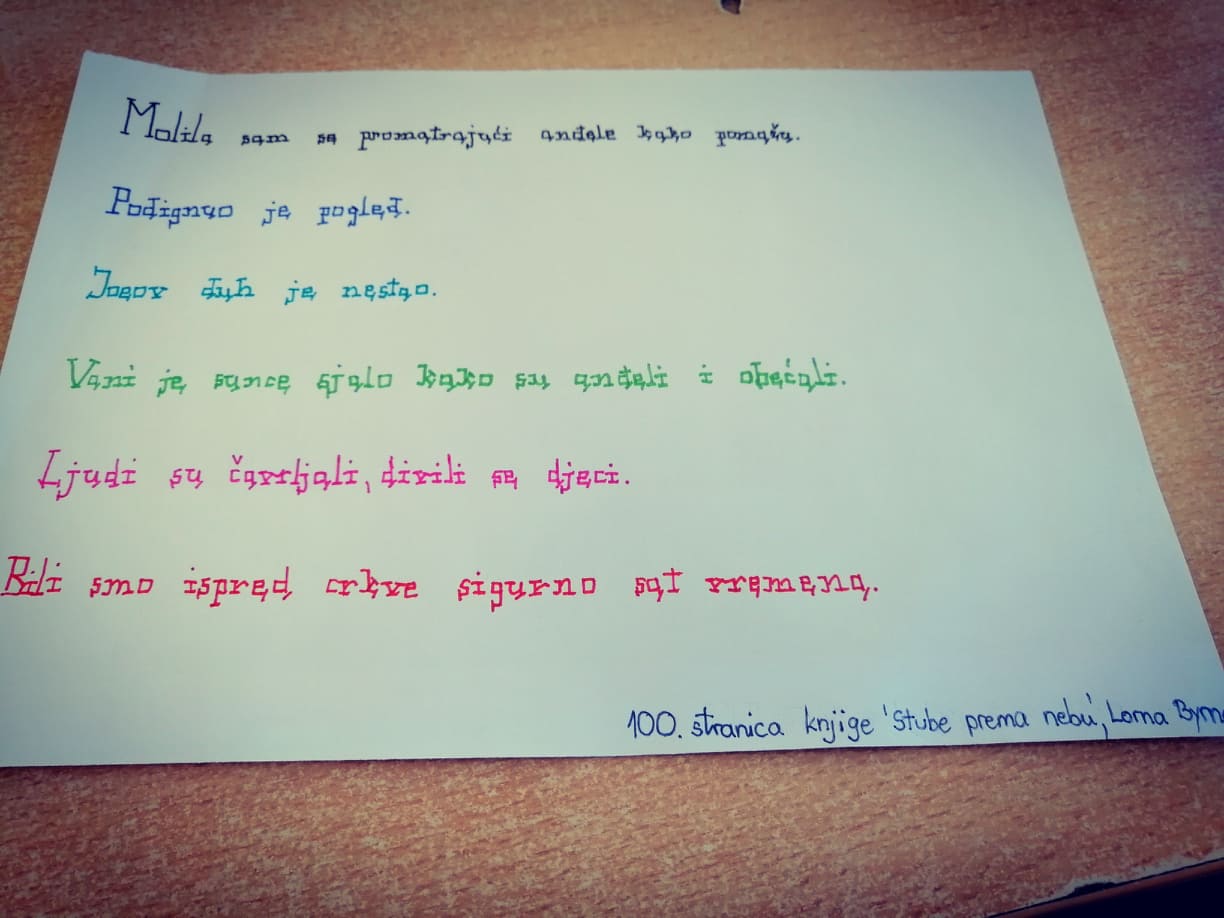 Molila sam se promatrajući anđele kako pomažu.
Podignuo je pogled.
Joeov duh je nestao.
Vani je sunce sjalo kako su anđeli i obećali.
Ljudi su čavrljali, divili se djeci.
Bili smo ispred crkve sigurno sat vremena.
100. stranica knjige 'Stube prema nebu', Lorna Byrn